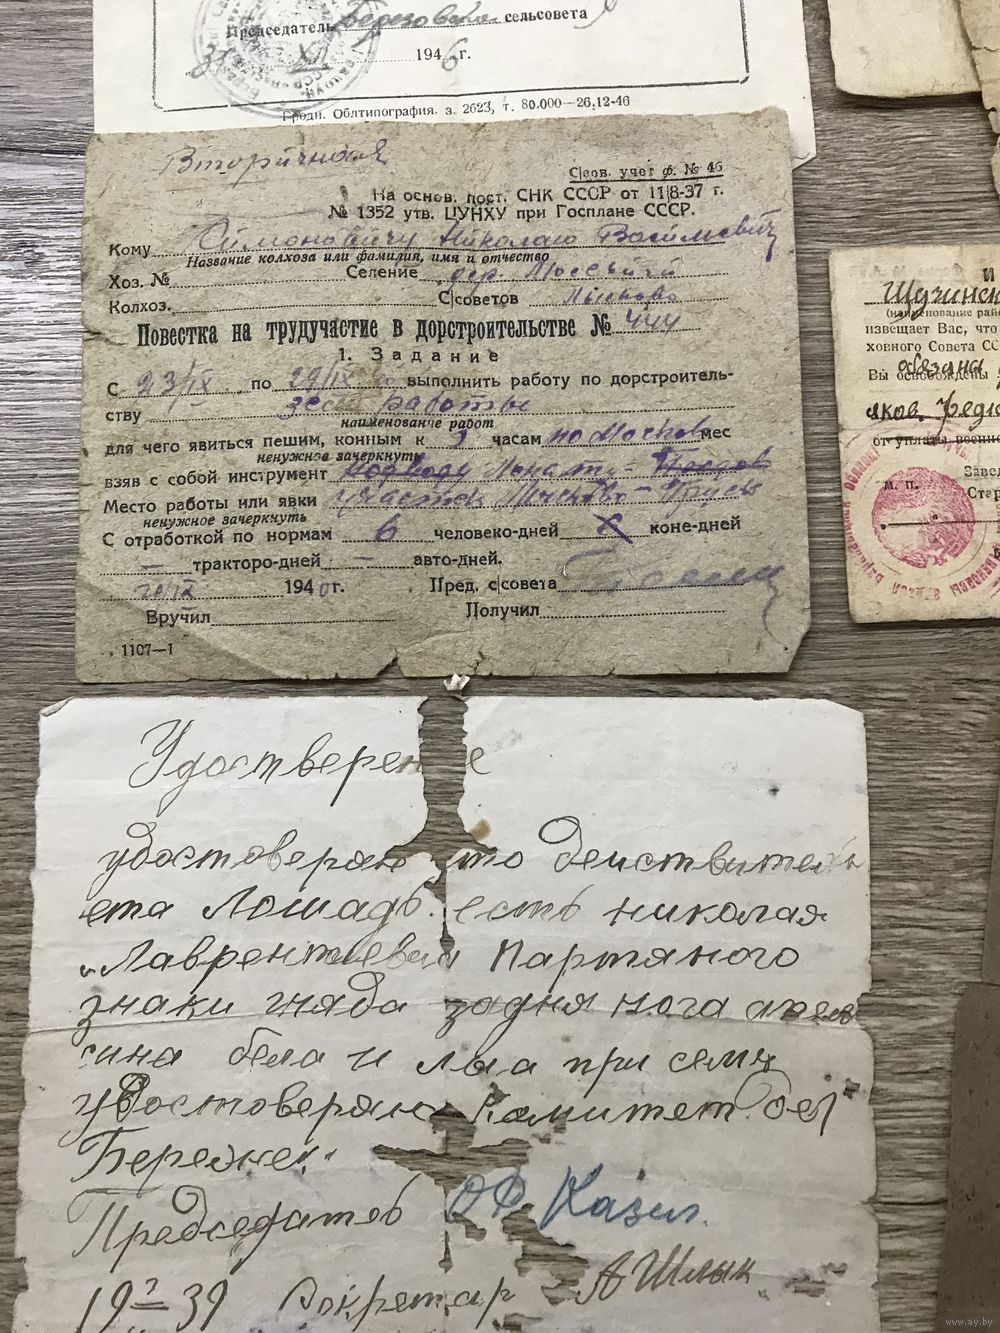 Председатель Березовский сельсовета
31 XII 1946 г.
Гродн. Облтипография, з. 2623, т. 80.000—26.12-46
Вторичная
С|сов. учет ф. № 46
На основ. пост. СНК СССР от 11|8-37 г.
№ 1352 утв. ЦУНХУ при Госплане СССР.
Кому Симоновичу Николаю Васильевич
Название колхоза или фамилия, имя и отчество
Хоз. № Селение дер.
Колхоз. С|советов
Повестка на трудучастие в дорстроительстве № 444
1. Задание
С 23/IX по 29/IX выполнить работу по дорстроитель-
ству зем работы
наименование работ
для чего явиться пешим, конным к 9 часам по Москов мес
ненужное зачеркнуть
взяв с собой инструмент подводу лопату
Место работы или явки участок
ненужное зачеркнуть
С отработкой по нормам 6 человеко-дней коне-дней
— тракторо-дней — авто-дней.
20/IX 1940 г. Пред. с|совета
Вручил Получил
1107—1
И
Щузинск
(наименование рай
извещает Вас, что
ховного Совета СС
обязана
Вы освобождены
яков. Федо
от уплаты военно
м. п. Завед
Стар
Удостверение
удостоверян што действителн
ета Лошадь есть николая
Лаврентиевич Партяного
знаки гняда задня нога
бела и при сему
удостоверян Комитет
Береже
Председатеб ОФ Казил
19 2/ 39 Сокретар А Шлык
www.ay.by